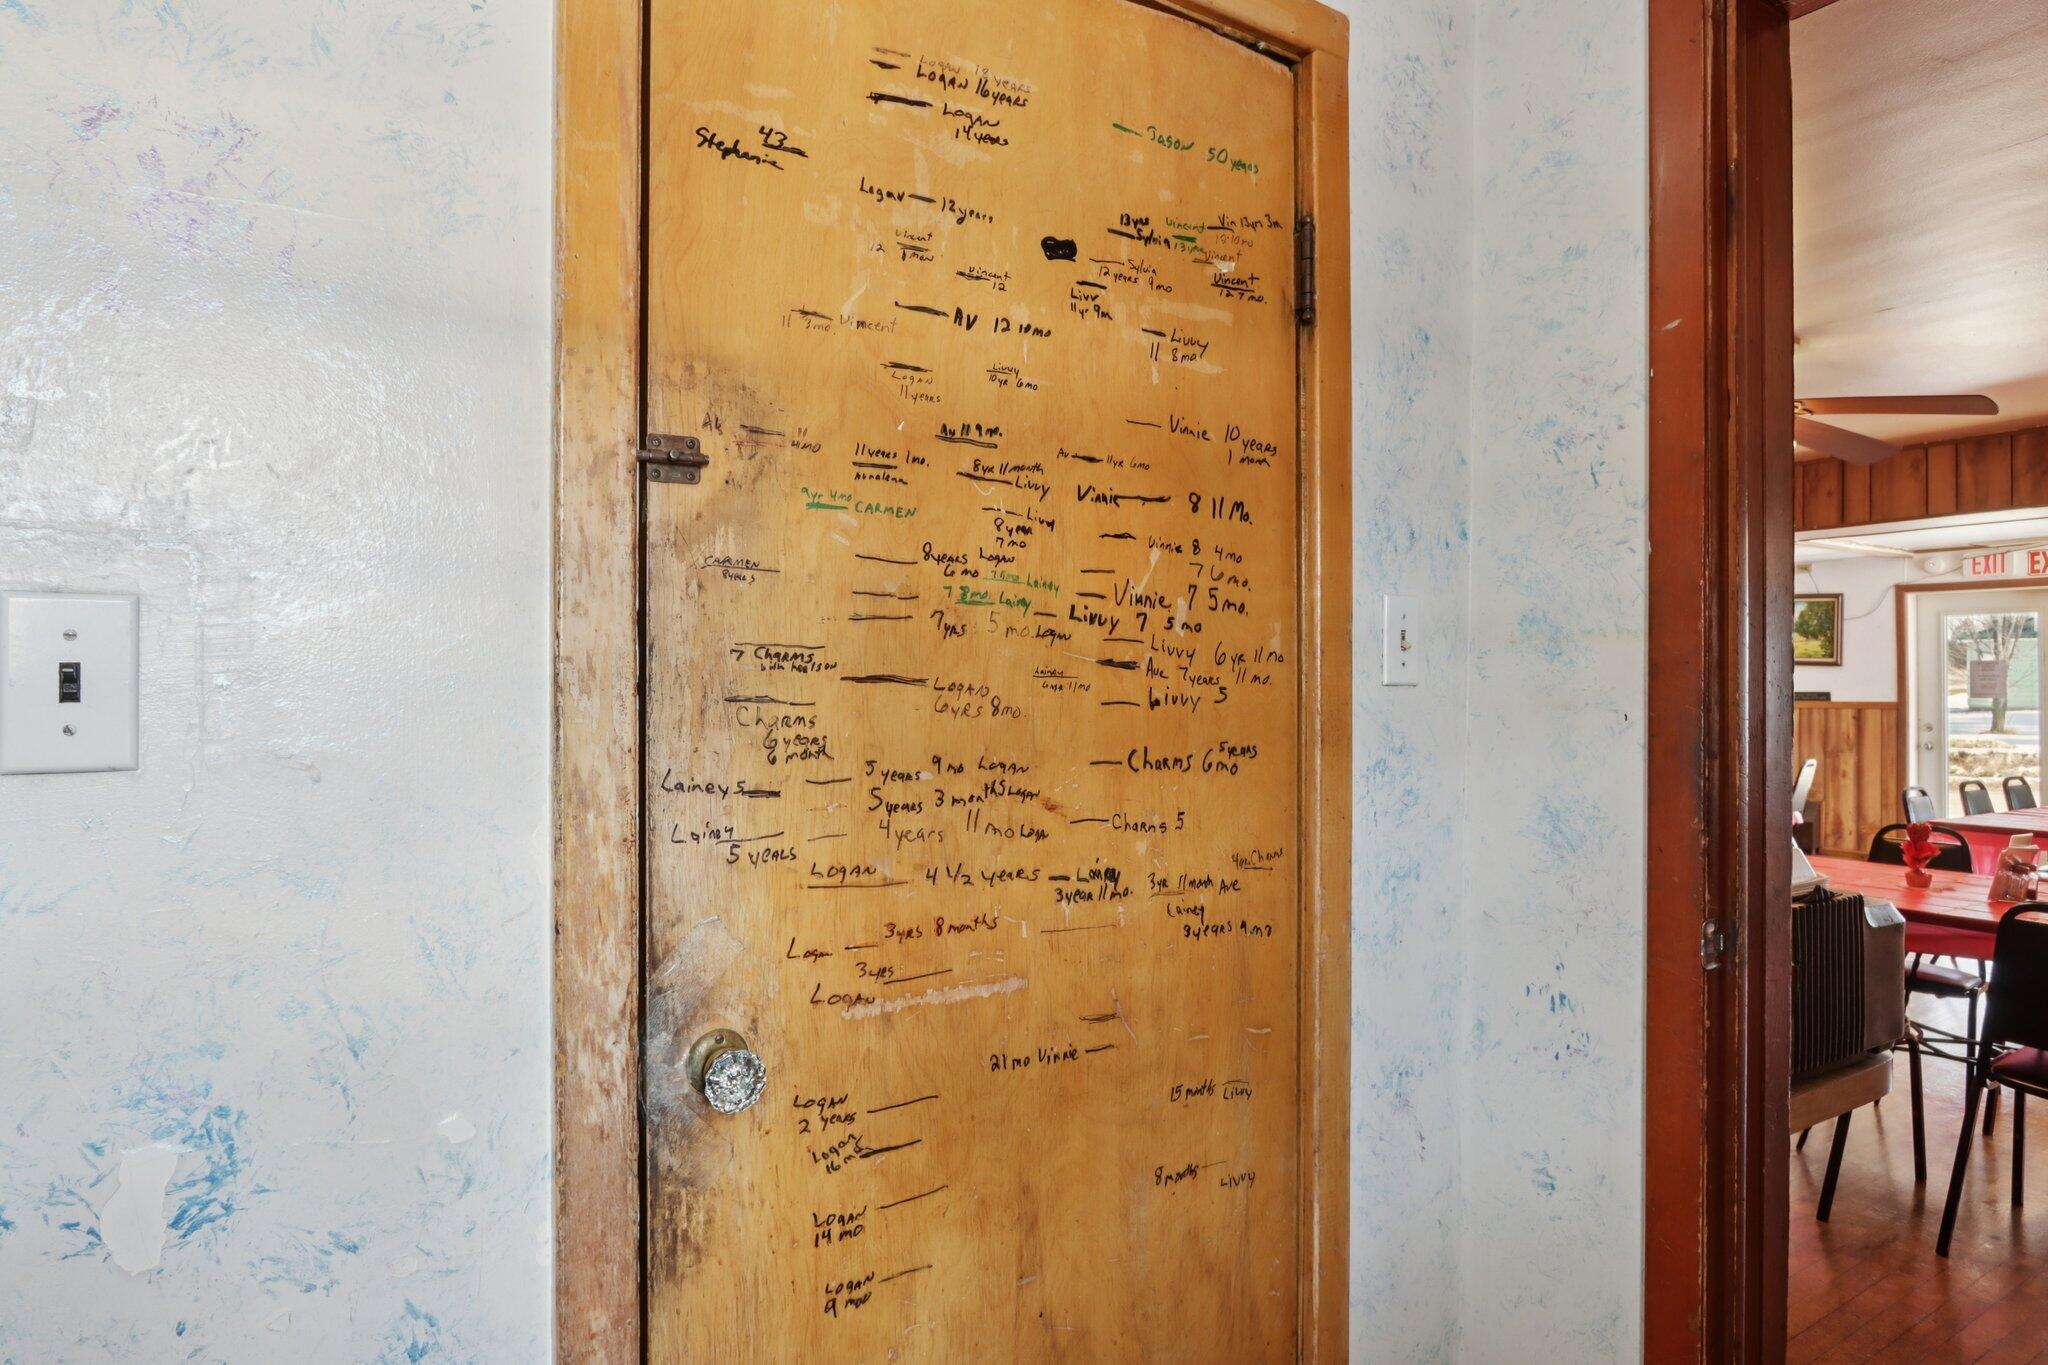 LOGAN 18 years
LOGAN 16 years
LOGAN
14 years
43
Stephanie
JASON 50 years
Logan 12 years
13 yrs
Sylvia
Vincent
13 yrs
Vin 13 yrs 3m
12 10mo
Vincent
12 Vincent
Vincent
12
Sylvia
12 years 9 mo
Vincent
12 7 mo.
Livv
11 yr 9m
11 3mo. Vincent
AV 12 10 mo
Livvy
11 8 mo.
LOGAN
11 years
Livvy
10 yr 6 mo
Vinnie 10 years
1 month
11
4 mo
AV 11 9 mo.
11 years 1 mo.
8 yr 11 month
Livvy
AV 11 yr 6 mo
Vinnie 8 11 Mo.
9 yr 4 mo
CARMEN
Livvy
8 year
7 mo
Vinnie 8 4 mo
CARMEN
8 years
8 years Logan
6 mo
Lainey
7 6 mo.
7 8 mo. Lainy
Vinnie 7 5 mo.
7 yrs 5 mo. Logan
Livvy 7 5 mo
7 Charms
Livvy 6 yr 11 mo
Ave 7 years 11 mo.
Lainey
6 yr 11 mo
LOGAN
6 YRS 8 mo.
Livvy 5
Charms
6 years
6 month
5 years 9 mo LOGAN
Charms 5 years
6 mo
Lainey 5
5 years 3 months LOGAN
Lainey
5 years
4 years 11 mo Logan
Charms 5
LOGAN 4 1/2 years
Lainey
3 year 11 mo.
3 yr 11 month Ave
Lainey
3 years 9 mo
Logan 3 yrs 8 months
3 yrs
LOGAN
21 mo Vinnie
15 months Livvy
LOGAN
2 years
Logan
16 mo
8 months Livvy
LOGAN
14 mo
LOGAN
9 mo
EXIT
EX